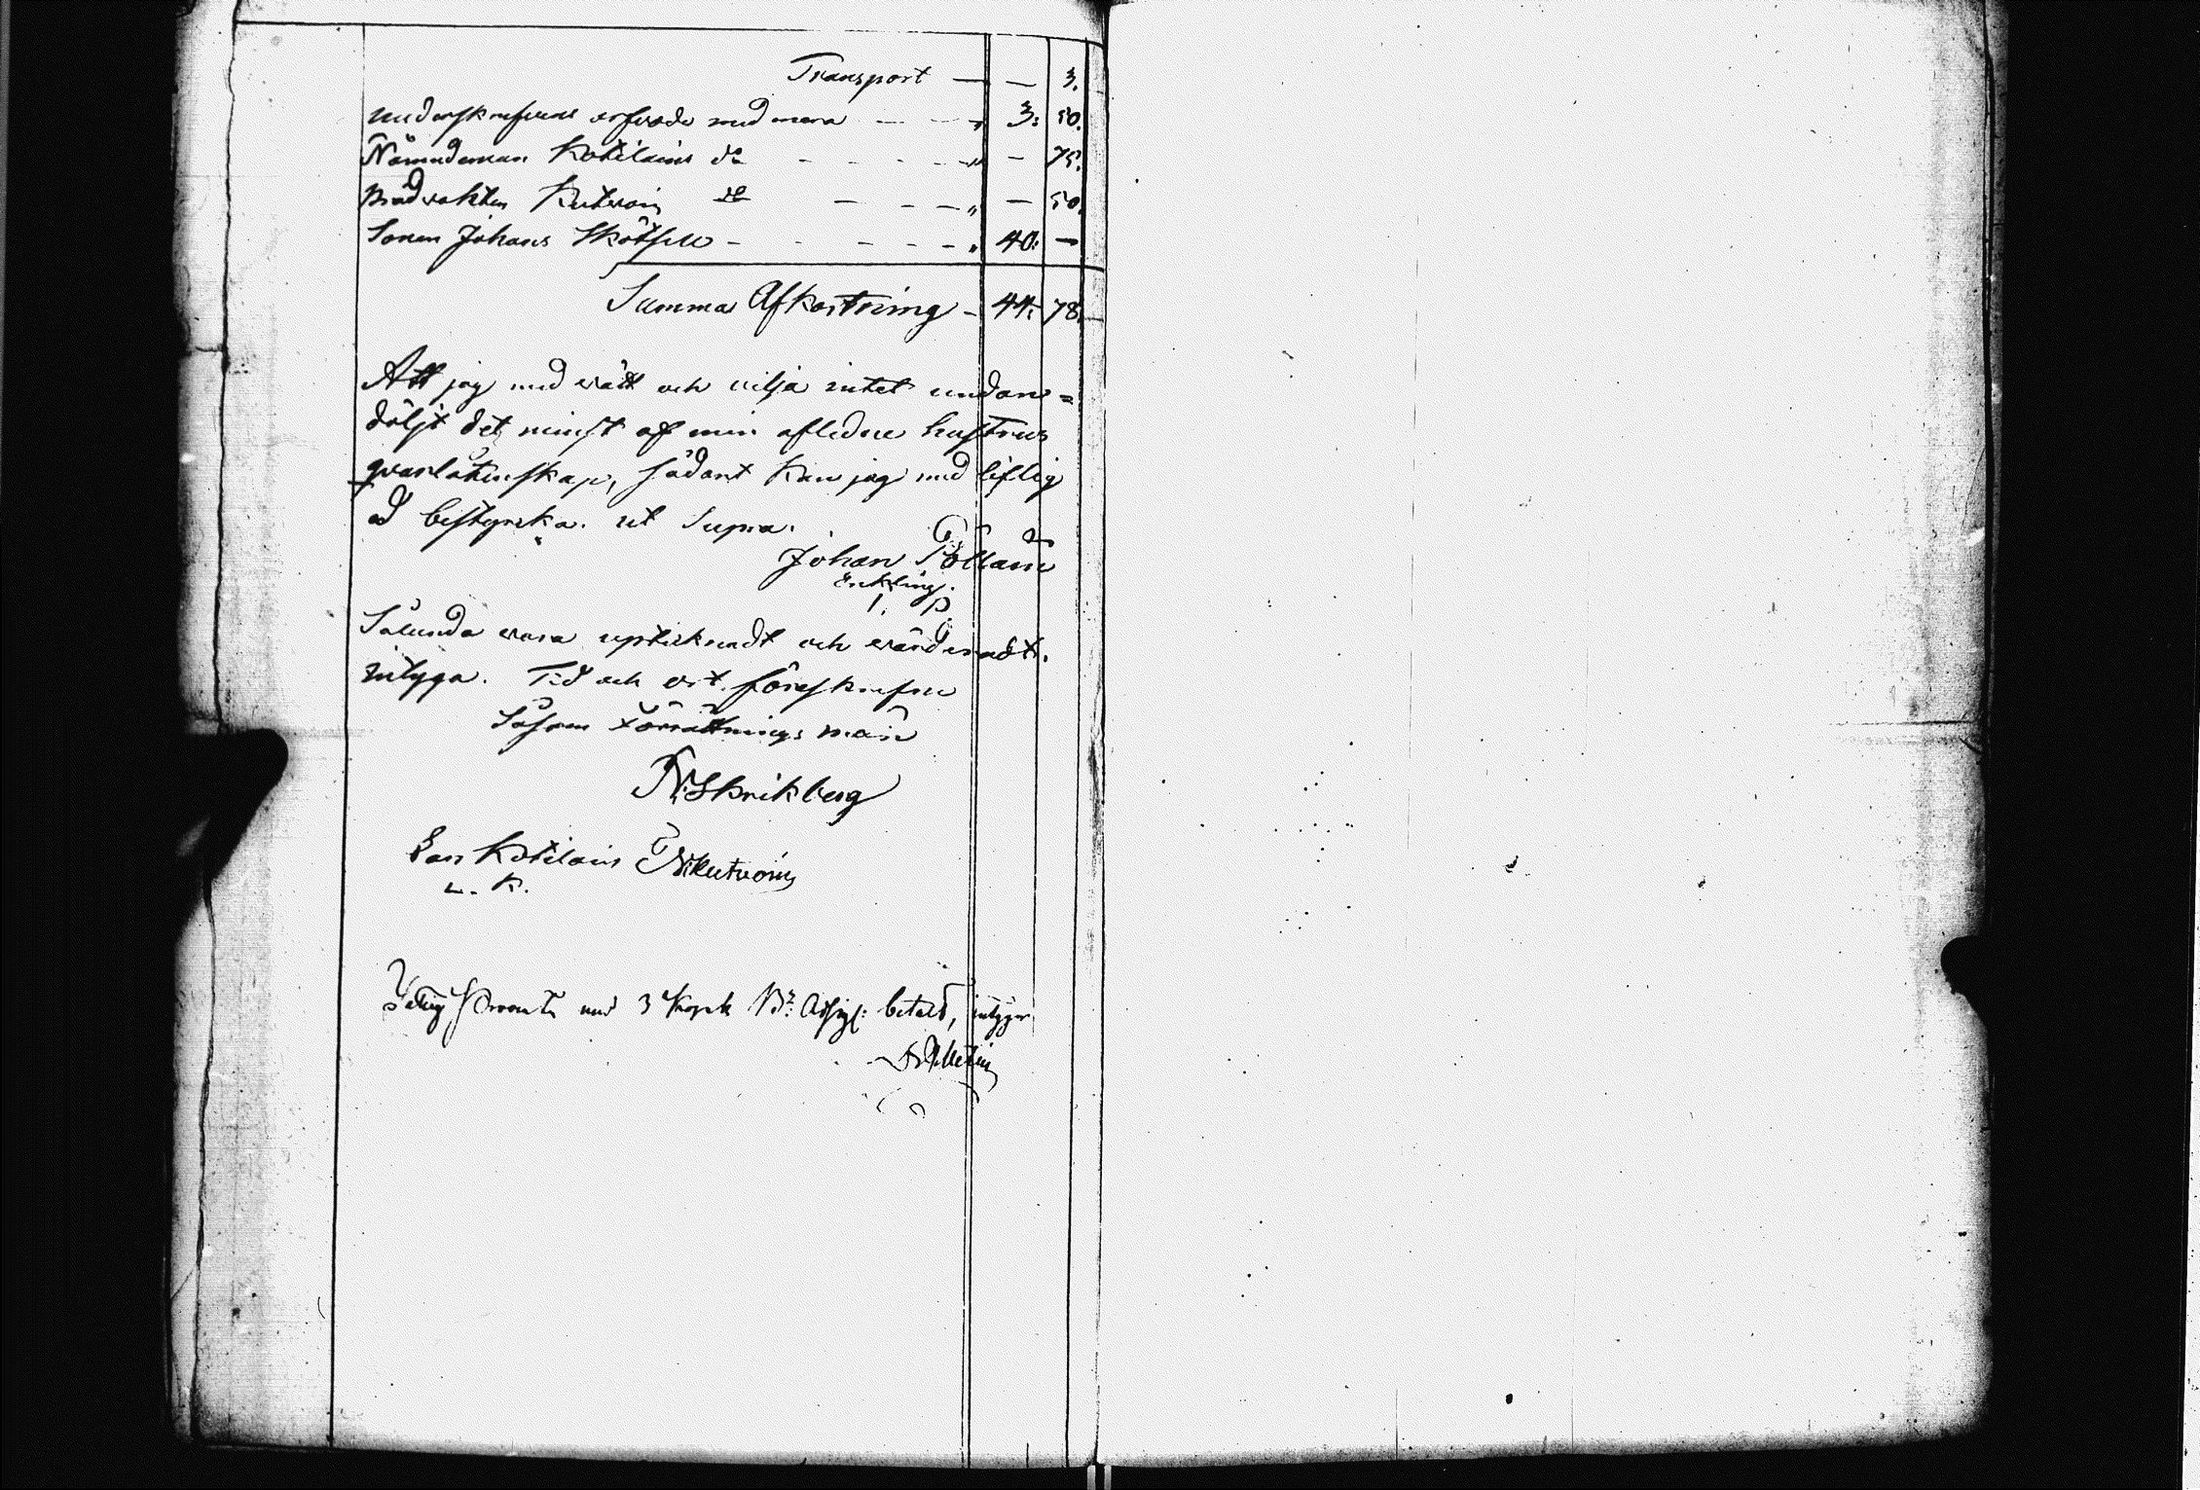 Transport — — 3.
underskrifvens arfvode med mera — — " 3: 50.
Nämndeman Kotilains do - - - - " — 75.
Brådvakten Kutvoin do — — — " — 50.
Sonen Johans Skötsell - - - - - " 40: —
Summa Afkortning - 44: 78.
Att jag med vätt och vilja intet undan=
döljt det minst af min aflidne hustrus
qvarlåtenskap, sådant kan jag med liflig
ed bestyrka. ut Supra.
Johan Pölläin
Enkling.
I. P
Sålunda vara uptecknadt och värderadt.
intyga. Tid och ort föreskrifne
Såsom Förrättnings män
N: Skrikberg
Kotilain N: Kutvoin
L. K.
Fattig Procent med 3 Kopek B:r Assign: betald, intygar